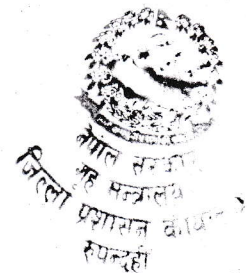 नेपाल सरकार
गृह मन्त्रालय
जिल्ला प्रशासन
रुपन्देही